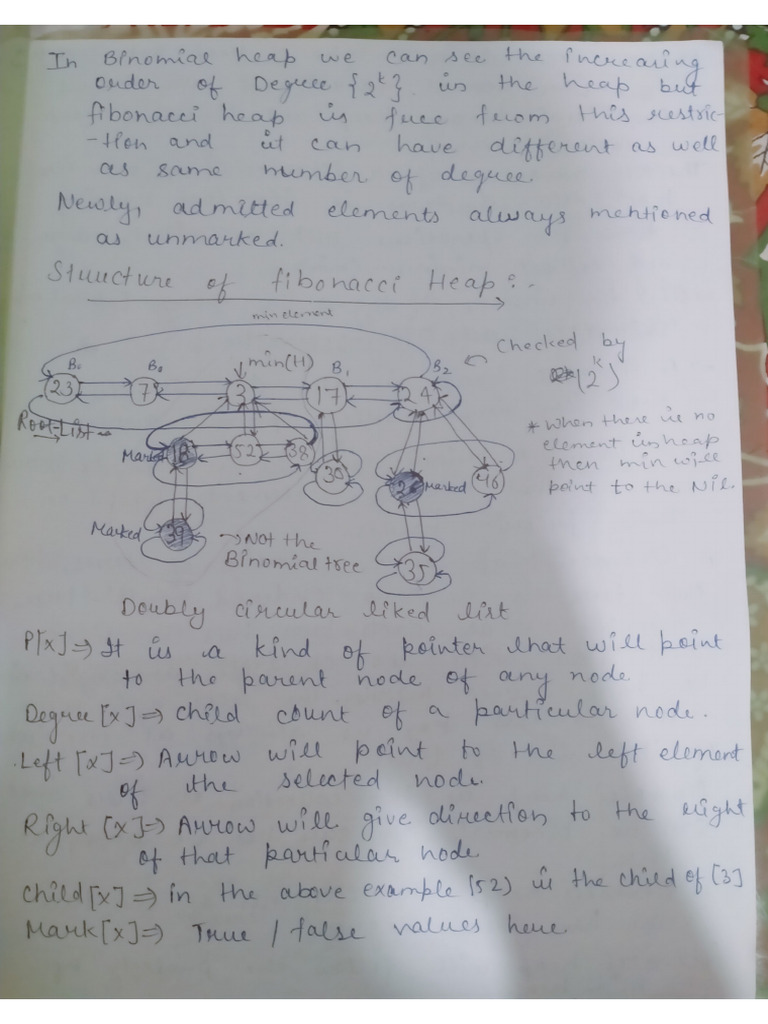 In Binomial heap we can see the increasing
order of Degree {2^k} in the heap but
fibonacci heap is free from this restric-
-tion and it can have different as well
as same number of degree.
Newly, admitted elements always mentioned
as unmarked.
Structure of fibonacci Heap:-
min element
B₀ B₀ min(H) B₁ B₂
Checked by
(2^k)
23 7 3 17 24
Root-List
* When there is no
element in heap
then min will
point to the Nil.
Marked 18 52 38 30 26 Marked 46
Marked 39
→ Not the
Binomial tree
35
Doubly circular liked list
P[x] ⇒ It is a kind of pointer that will point
to the parent node of any node.
Degree [x] ⇒ Child count of a particular node.
Left [x] ⇒ Arrow will point to the left element
of the selected node.
Right [x] ⇒ Arrow will give direction to the right
of that particular node
Child [x] ⇒ in the above example (52) is the child of [3]
Mark [x] ⇒ True / false values here.